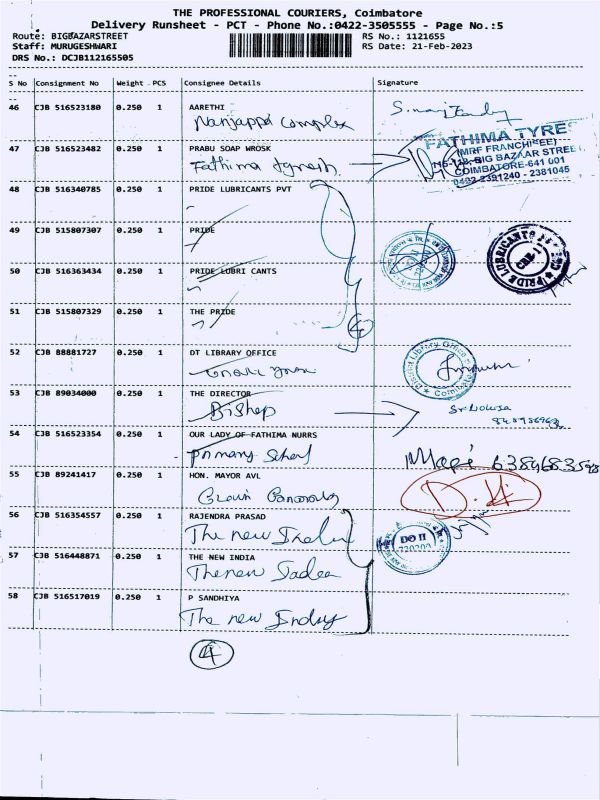 THE PROFESSIONAL COURIERS, Coimbatore
Delivery Runsheet - PCT - Phone No.:0422-3505555 - Page No.:5
Route: BIGBAZARSTREET RS No.: 1121655
Staff: MURUGESHWARI RS Date: 21-Feb-2023
DRS No.: DCJB112165505
S No Consignment No Weight PCS Consignee Details Signature
46 CJB 516523180 0.250 1 AARETHI
Nanjappa Complex
47 CJB 516523482 0.250 1 PRABU SOAP WROSK
Fathima
FATHIMA TYRES
(MRF FRANCHISEE)
BIG BAZAAR STREET
COIMBATORE-641 001
0422-2391240 - 2381045
48 CJB 516340785 0.250 1 PRIDE LUBRICANTS PVT
49 CJB 515807307 0.250 1 PRIDE
PRIDE LUBRICANTS
50 CJB 516363434 0.250 1 PRIDE LUBRI CANTS
51 CJB 515807329 0.250 1 THE PRIDE
4
52 CJB 88881727 0.250 1 DT LIBRARY OFFICE
District Library Office
Coimbatore
53 CJB 89034000 0.250 1 THE DIRECTOR
Bishop
54 CJB 516523354 0.250 1 OUR LADY OF FATHIMA NURRS
Primary School
55 CJB 89241417 0.250 1 HON. MAYOR AVL
56 CJB 516354557 0.250 1 RAJENDRA PRASAD
The new India
DO II
57 CJB 516448871 0.250 1 THE NEW INDIA
The new India
58 CJB 516517019 0.250 1 P SANDHIYA
The new India
4